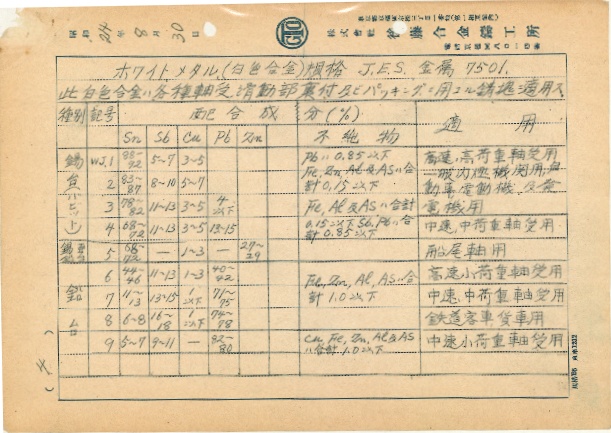 昭和 24年8月30日
GTO
株式會社 後藤合金鑄工所
ホワイトメタル(白色合金)規格 J.E.S. 金属 7501.
此白色合金ハ各種軸受滑動部裏付及ビパッキングニ用ユル鋳造ニ適用ス
種別 記号 配合成分(%) 適用
Sn Sb Cu Pb Zn 不純物
錫台(バビット)
WJ.1 88-92 5-7 3-5 Pbハ0.85以下 高速,高荷重軸受用
2 83-87 8-10 5-7 Fe, Zn, Al及Asハ合計0.15以下 一般内燃機関用,自動車電動機,及発電機用
3 78-82 11-13 3-5 4以下 Fe, Al及Asハ合計
4 68-72 11-13 3-5 13-15 0.15以下 Sb, Pbハ合計0.85以下 中速,中荷重軸受用
5 68-72 — 1-3 — 27-29 船尾軸用
鉛台
6 44-46 11-13 1-3 40-42 Fe, Zn, Al, Asハ合計1.0以下 高速小荷重軸受用
7 11-13 13-15 1以下 71-75 中速,中荷重軸受用
8 6-8 16-18 1以下 74-78 鉄道客車貨車用
9 5-7 9-11 — 82-80 Cu, Fe, Zn, Al及Asハ合計1.0以下 中速小荷重軸受用